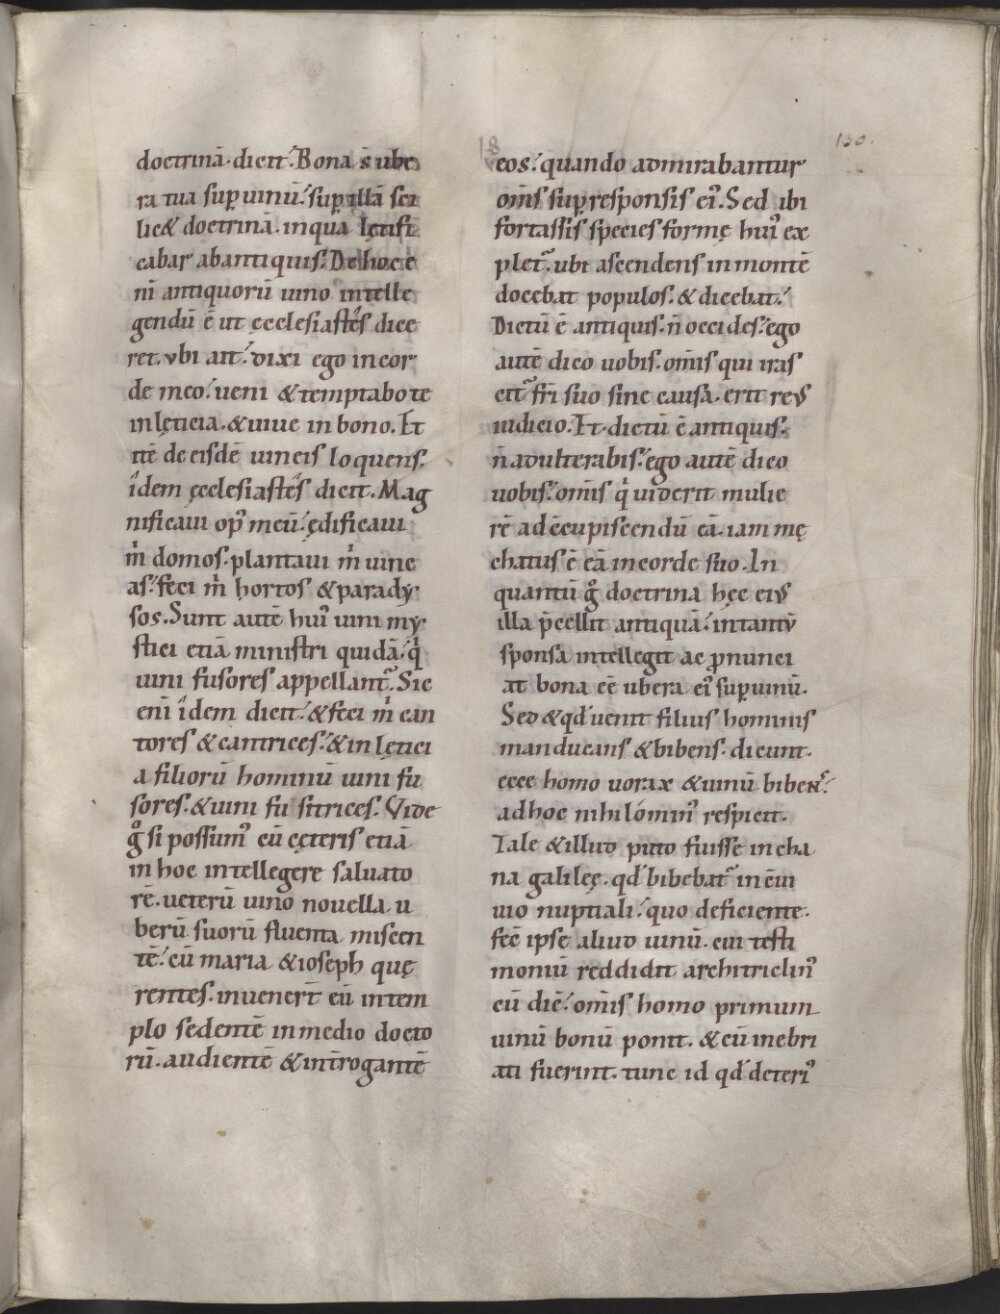 130.
18
doctrinā· dicit·́ Bona s̄ ube
ra tua suꝑ uinū·́ suꝑ illā sci
lic& doctrinā· in qua lętifi
cabar ab antiquis·́ De hoc e
ni antiquorū uino intelle
gendū ē ut ęcclesiastes dice
ret· vbi ait·́ dixi ego in cor
de meo·́ ueni & temptabo te
in lęticia· & uiue in bono· Et
itē de eisdē uineis loquens·́
idem ęcclesiastes dicit· Mag
nificaui op᾽ meū·́ ędificaui
m̍ domos· plantaui m̍ uine
as·́ feci m̍ hortos & parady
sos· Sunt autē hui᾽ uini my
stici etiā ministri quidā·́ q̍
uini fusores appellant᷑· Sic
eni idem dicit·́ & feci m̍ can
tores & cantrices·́ & in lętici
a filiorū hominū uini fu
sores·́ & uini fusitrices· Vide
g̊ si possum᾽ eū cęteris etiā
in hoc intellegere saluato
rē· ueterū uino nouella u
berū suorū fluenta miscen
tē·́ cū maria & ioseph quę
rentes· inuenert̄ eū in tem
plo sedentē in medio docto
rū· audientē & int̄rogantē
eos·́ quando admirabantur
om̄s suꝑ responsis ei᾽· Sed ibi
fortassis species formę hui᾽ ex
plet᷑· ubi ascendens in montē
docebat populos· & dicebat·́
Dictū ē antiquis· n̄ occides·́ ego
autē dico uobis· om̄is qui iras
cit᷑ fr̄i suo sine causa· erit reus
iudicio· Et· dictū ē antiquis·
n̄ adulterabis·́ ego autē dico
uobis·́ om̄is q̍ uiderit mulie
rē ad c̄cupiscendū eā· iam mę
chatus ē eā in corde suo· In
quantū g̊ doctrina hęc eius
illa p̄cellit antiquā·́ in tantū
sponsa intellegit ac ꝓnunci
at bona eē ubera ei᾽ suꝑ uinū·
Sed & qđ uenit filius hominis
manducans & bibens· dicunt·
ecce homo uorax & uinū bibens·́
ad hoc nihilomin᾽ respicit·
Tale & illud puto fuisse in cha
na galileę· qđ bibebat᷑ in c̄ui
uio nuptiali·́ quo deficiente·
fec̄ ipse aliud uinū· cui testi
moniū reddidit architriclin᾽
cū dic̄·́ om̄is homo primum
uinū bonū ponit· & cū inebri
ati fuerint· tunc id qđ deteri᾽